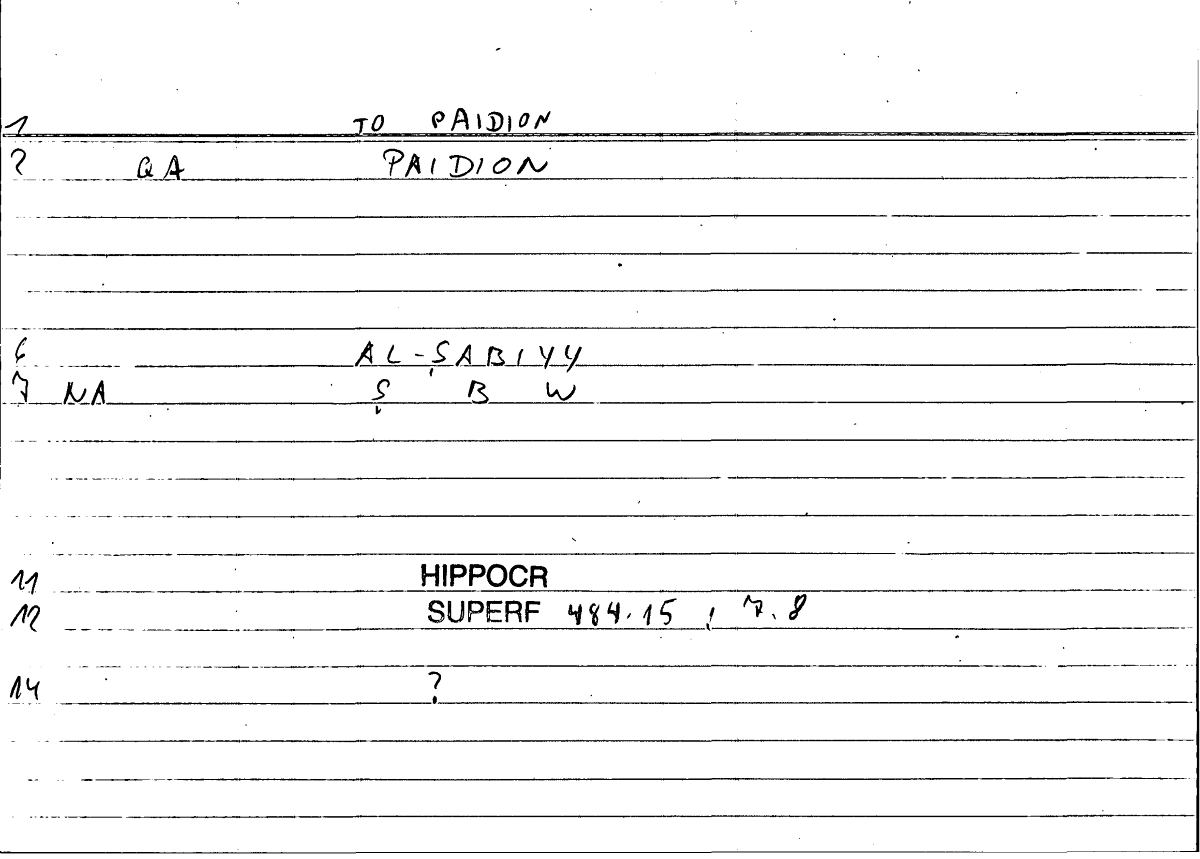 1 TO PAIDION
2 QA PAIDION
6 AL-ṢABIYY
7 NA Ṣ B W
11 HIPPOCR
12 SUPERF 484.15 ; 7.8
14 ?